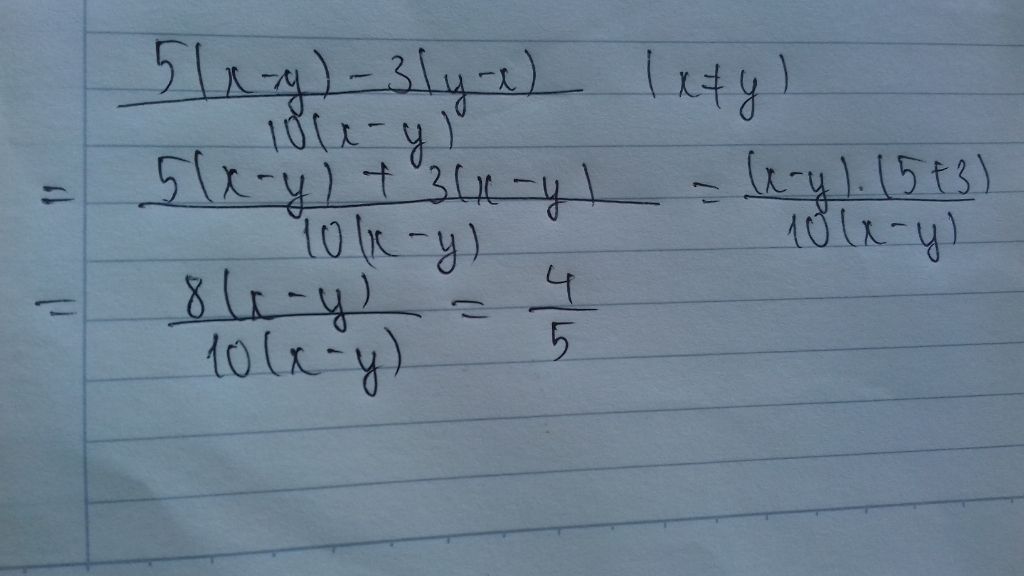 5(x-y) - 3(y-x) / 10(x-y) (x≠y)
= 5(x-y) + 3(x-y) / 10(x-y) = (x-y).(5+3) / 10(x-y)
= 8(x-y) / 10(x-y) = 4/5